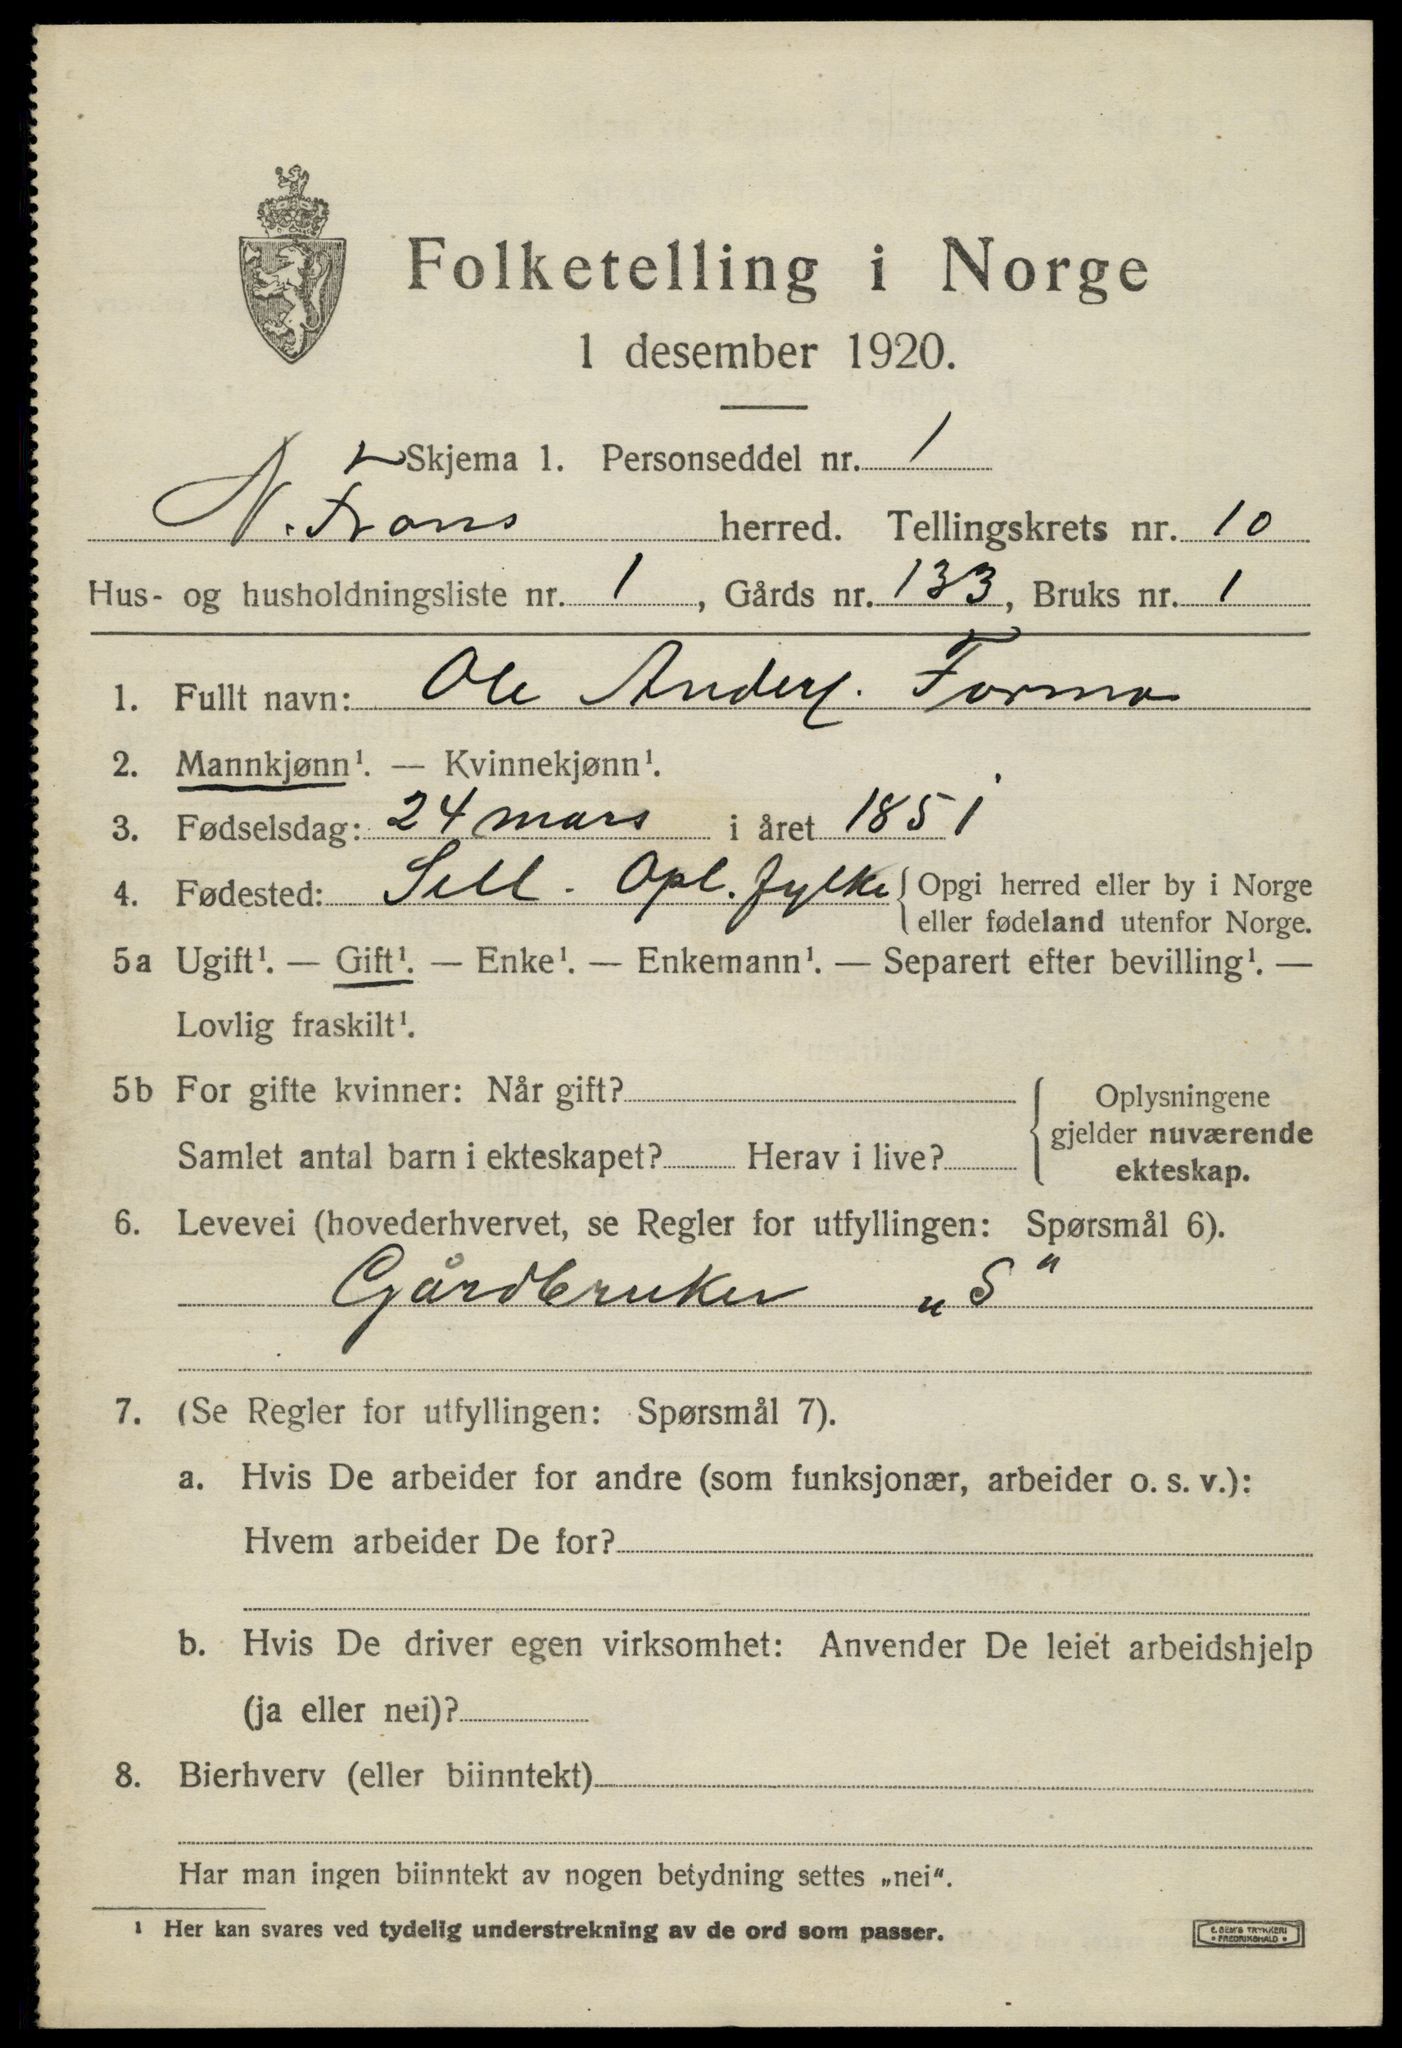 Folketelling i Norge
1 desember 1920.
Skjema 1. Personseddel nr. 1
N. Frons herred. Tellingskrets nr. 10
Hus- og husholdningsliste nr. 1, Gårds nr. 133, Bruks nr. 1
1. Fullt navn: Ole Anders. Formo
2. Mannkjønn¹. — Kvinnekjønn¹.
3. Fødselsdag: 24 mars i året 1851
4. Fødested: Sell. Opl. fylke { Opgi herred eller by i Norge
eller fødeland utenfor Norge.
5a Ugift¹. — Gift¹. — Enke¹. — Enkemann¹. — Separert efter bevilling¹. —
Lovlig fraskilt¹.
5b For gifte kvinner: Når gift?
Samlet antal barn i ekteskapet? Herav i live?
Oplysningene
gjelder nuværende
ekteskap.
6. Levevei (hovederhvervet, se Regler for utfyllingen: Spørsmål 6).
Gårdbruker „S"
7. (Se Regler for utfyllingen: Spørsmål 7).
a. Hvis De arbeider for andre (som funksjonær, arbeider o. s. v.):
Hvem arbeider De for?
b. Hvis De driver egen virksomhet: Anvender De leiet arbeidshjelp
(ja eller nei)?
8. Bierhverv (eller biinntekt)
Har man ingen biinntekt av nogen betydning settes „nei“.
¹ Her kan svares ved tydelig understrekning av de ord som passer.
E. SEM'S TRYKKERI
• FREDRIKSHALD •